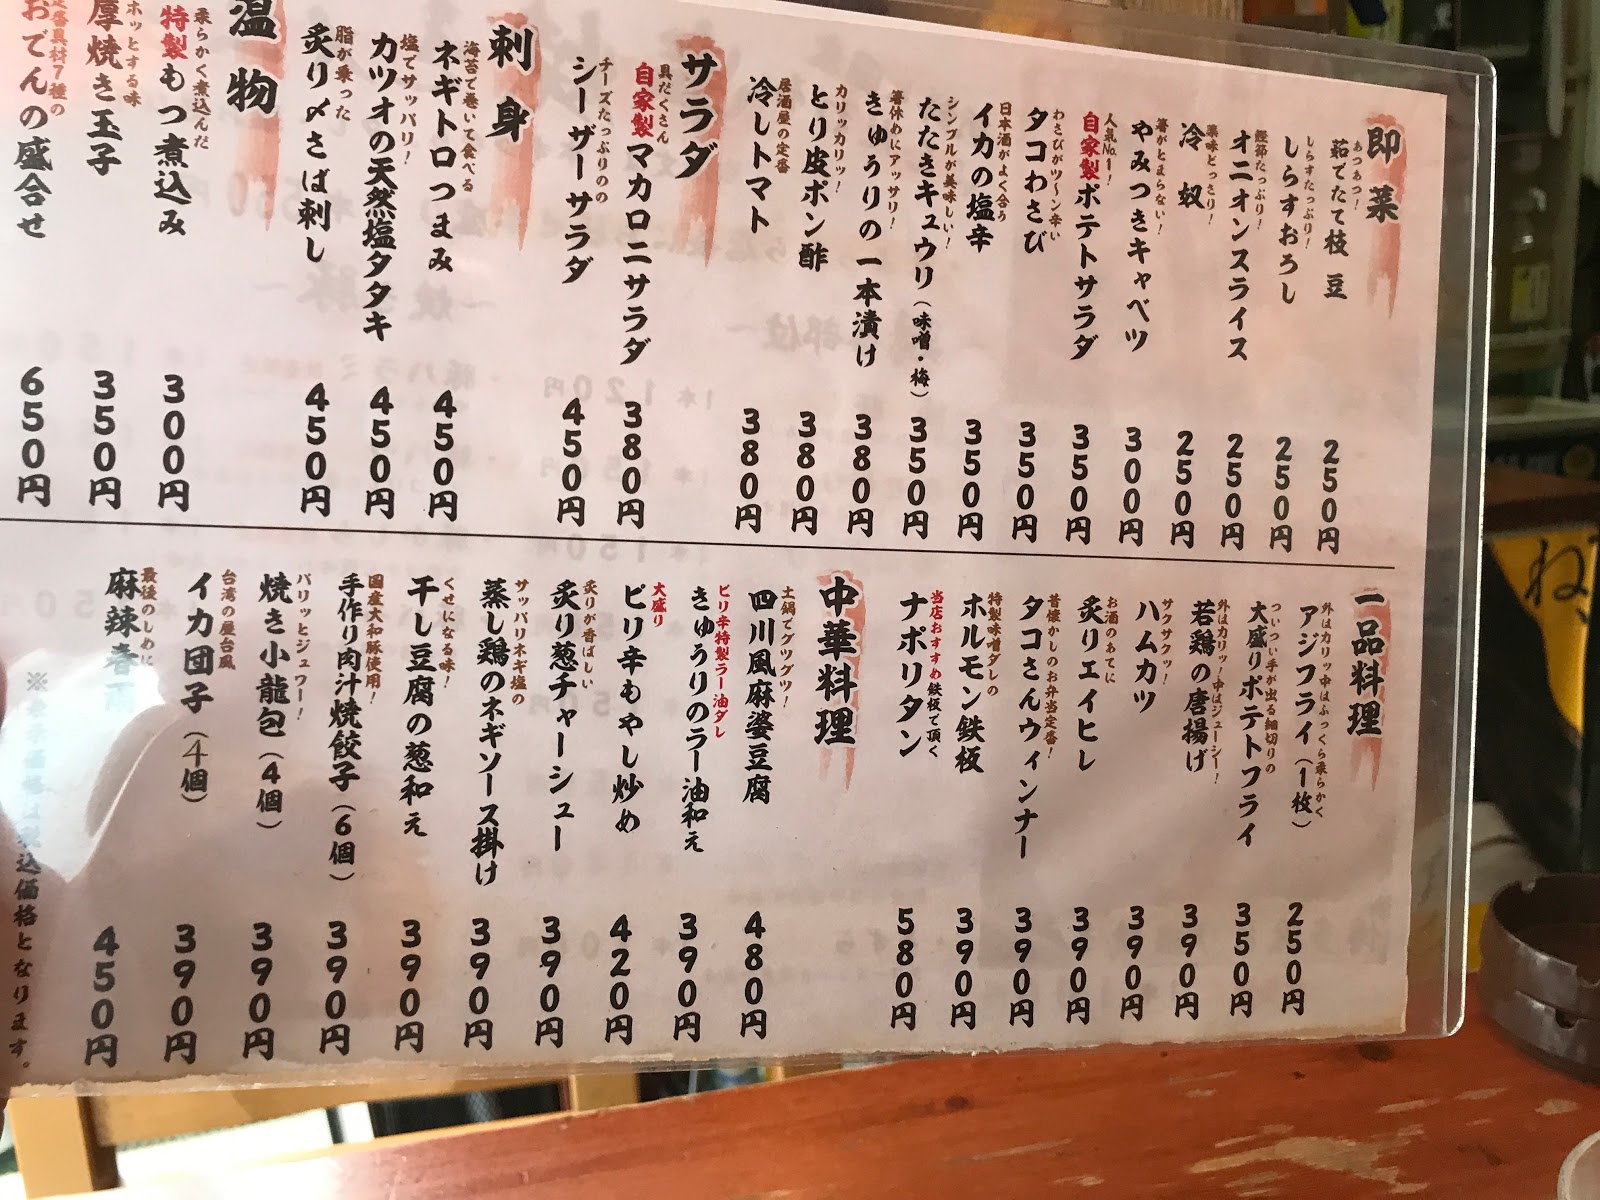 即菜
あつあつ!
茹でたて枝豆 250円
しらすたっぷり!
しらすおろし 250円
鰹節たっぷり!
オニオンスライス 250円
薬味どっさり!
冷奴 250円
箸がとまらない!
やみつきキャベツ 300円
人気No.1!
自家製ポテトサラダ 350円
わさびがツ〜ン辛い
タコわさび 350円
日本酒がよく合う
イカの塩辛 350円
シンプルが美味しい!
たたきキュウリ(味噌・梅) 350円
箸休めにアッサリ!
きゅうりの一本漬け 380円
カリッカリッ!
とり皮ポン酢 380円
居酒屋の定番
冷しトマト 380円
サラダ
具だくさん
自家製マカロニサラダ 380円
チーズたっぷりのの
シーザーサラダ 450円
刺身
海苔で巻いて食べる
ネギトロつまみ 450円
塩でサッパリ!
カツオの天然塩タタキ 450円
脂が乗った
炙り〆さば刺し 450円
温物
柔らかく煮込んだ
特製もつ煮込み 300円
ホッとする味
厚焼き玉子 350円
定番具材7種の
おでんの盛合せ 650円
一品料理
外はカリッ中はふっくら柔らかく
アジフライ(1枚) 250円
ついつい手が出る細切りの
大盛りポテトフライ 350円
外はカリッ!中はジューシー!
若鶏の唐揚げ 390円
サクサクッ!
ハムカツ 390円
お酒のあてに
炙りエイヒレ 390円
昔懐かしのお弁当定番!
タコさんウィンナー 390円
特製味噌ダレの
ホルモン鉄板 390円
当店おすすめ鉄板で頂く
ナポリタン 580円
中華料理
土鍋でグツグツ!
四川風麻婆豆腐 480円
ピリ辛特製ラー油ダレ
きゅうりのラー油和え 390円
大盛り
ピリ辛もやし炒め 420円
炙りが香ばしい
炙り葱チャーシュー 390円
サッパリネギ塩の
蒸し鶏のネギソース掛け 390円
くせになる味!
干し豆腐の葱和え 390円
国産大和豚使用!
手作り肉汁焼餃子(6個) 390円
パリッとジュワー!
焼き小龍包(4個) 390円
台湾の屋台風
イカ団子(4個) 390円
最後のしめに
麻辣春雨 450円
税込価格となります。
ね